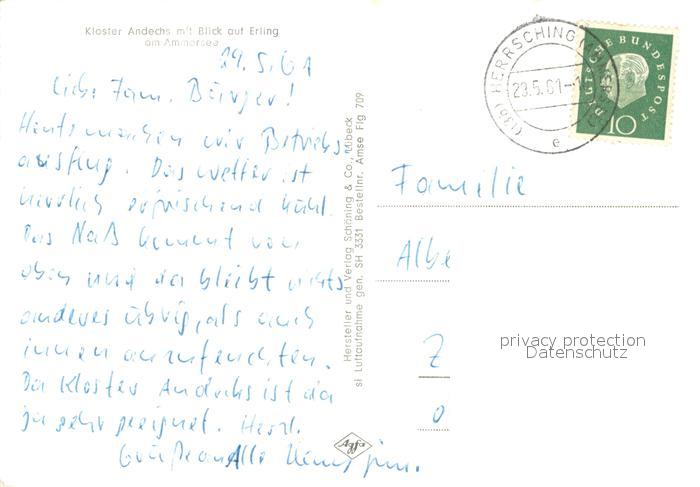 Kloster Andechs mit Blick auf Erling
am Ammersee
29.5.61
Liebe Fam. Bürger!
Heute machen wir Betriebs-
ausflug. Das Wetter ist
herrlich erfrischend kühl.
Das Naß kommt von
oben und da bleibt nichts
anderes übrig, als auch
innen anzufeuchten.
Da Kloster Andechs ist da
ja sehr geeignet. Herzl.
Grüße an Alle
Hersteller und Verlag Schöning & Co., Lübeck
si Luftaufnahme gen. SH 3331 Bestellnr. Amse Flg 709
Agfa
(13b) HERRSCHING
23.5.61-1
e
DEUTSCHE BUNDESPOST
10
Familie
Albe
Z
privacy protection
Datenschutz